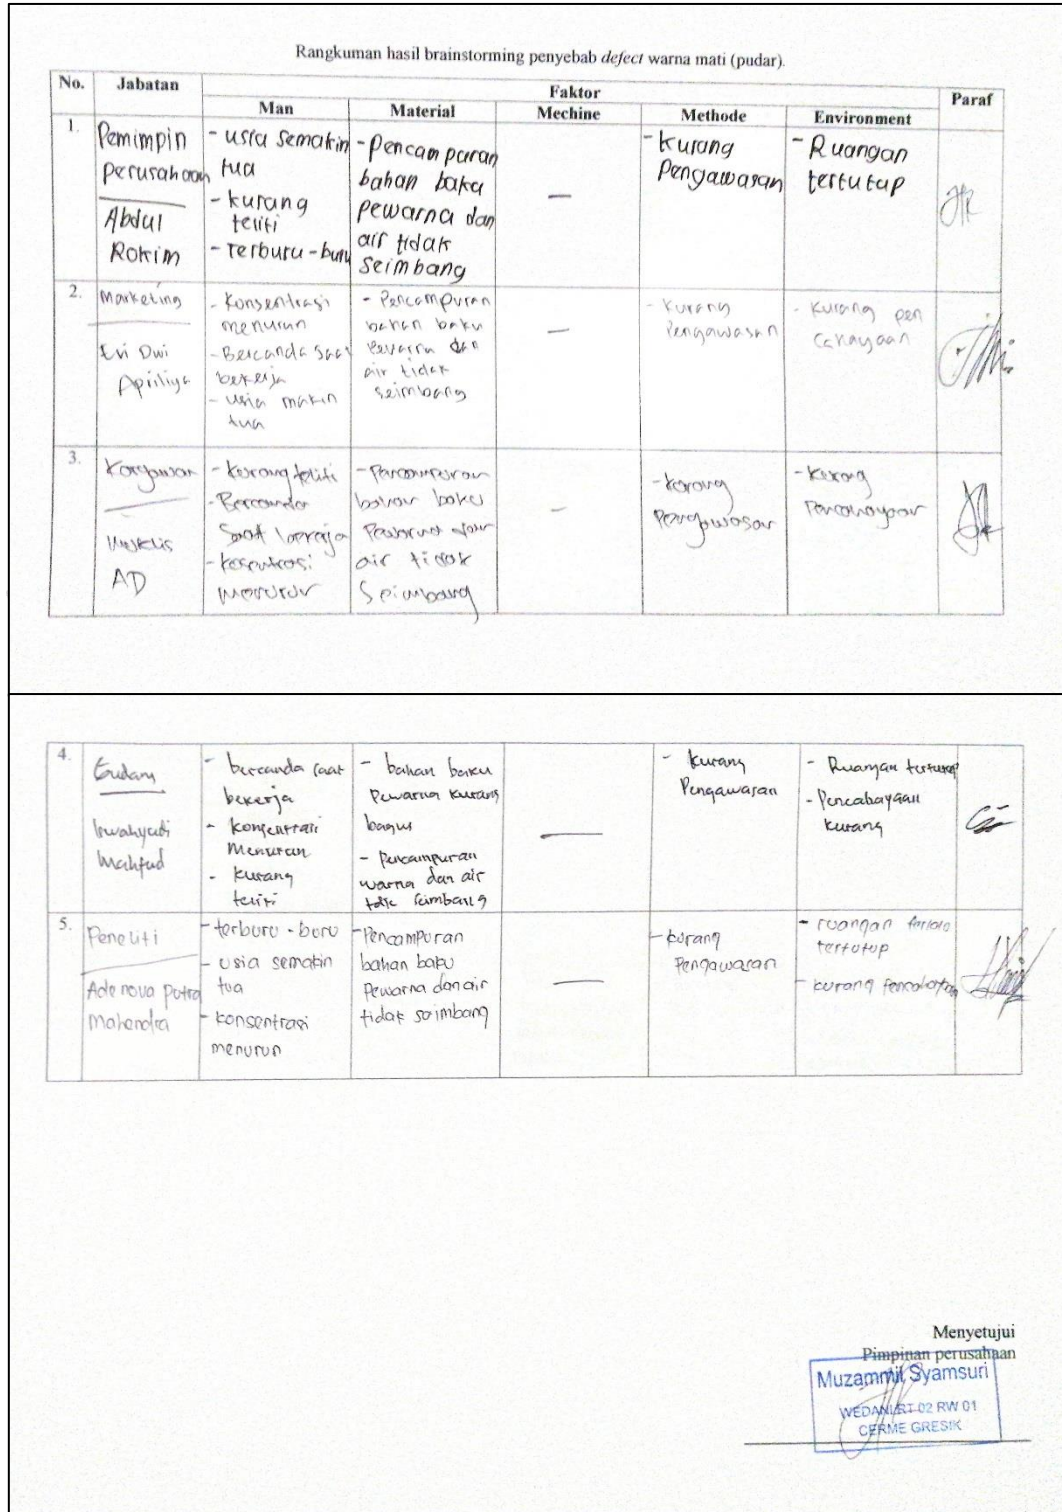 Rangkuman hasil brainstorming penyebab defect warna mati (pudar).
No. Jabatan Faktor Paraf
Man Material Mechine Methode Environment
1.
Pemimpin
perusahaan
Abdul
Rokim
- usia semakin
tua
- kurang
teliti
- Terburu-buru
- Pencamparan
bahan baku
pewarna dan
air tidak
seimbang
—
- kurang
Pengawasan
- Ruangan
tertutup
2.
Marketing
Evi Dwi
Apriliya
- Konsentrasi
menurun
- Bercanda saat
bekerja
- usia makin
tua
- Pencampuran
bahan baku
Pewarna dan
air tidak
seimbang
—
- Kurang
Pengawasan
- Kurang pen
cahayaan
3.
Karyawan
AD
- Kurang teliti
- Bercanda
Saat bekerja
- konsentrasi
menurun
- Pencampuran
bahan baku
Pewarna dan
air tidak
Seimbang
—
- Kurang
Pengawasan
- Kurang
Pencahayaan
4.
Gudang
Mahfud
- bercanda saat
bekerja
- konsentrasi
Menurun
- kurang
teliti
- bahan baku
Pewarna kurang
bagus
- Pencampuran
warna dan air
tdk seimbang
—
- Kurang
Pengawasan
- Ruangan tertutup
- Pencahayaan
kurang
5.
Peneliti
Ade nova putra
Mahendra
- terburu-buru
- usia semakin
tua
- konsentrasi
menurun
- Pencampuran
bahan baku
Pewarna dan air
tidak saimbang
—
- kurang
Pengawasan
- ruangan terlalu
tertutup
- kurang
Menyetujui
Pimpinan perusahaan
Muzammil Syamsuri
WEDANI RT 02 RW 01
CERME GRESIK